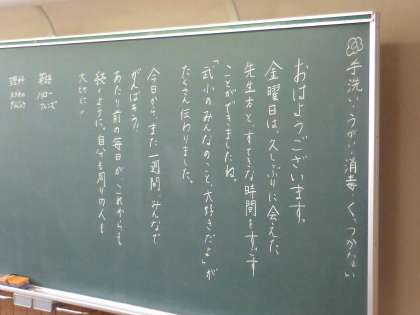 手洗い・うがい・消毒 くっつかない
おはようございます。
金曜日は、久しぶりに会えた
先生方と、すてきな時間をすごす
ことができましたね。
「武小のみんなのこと、大好きだよ」が
たくさん伝わりました。
今日から、また一週間、みんなで
がんばろう。
あたり前の毎日が、これからも
続くように、自分も周りの人も
大切に。